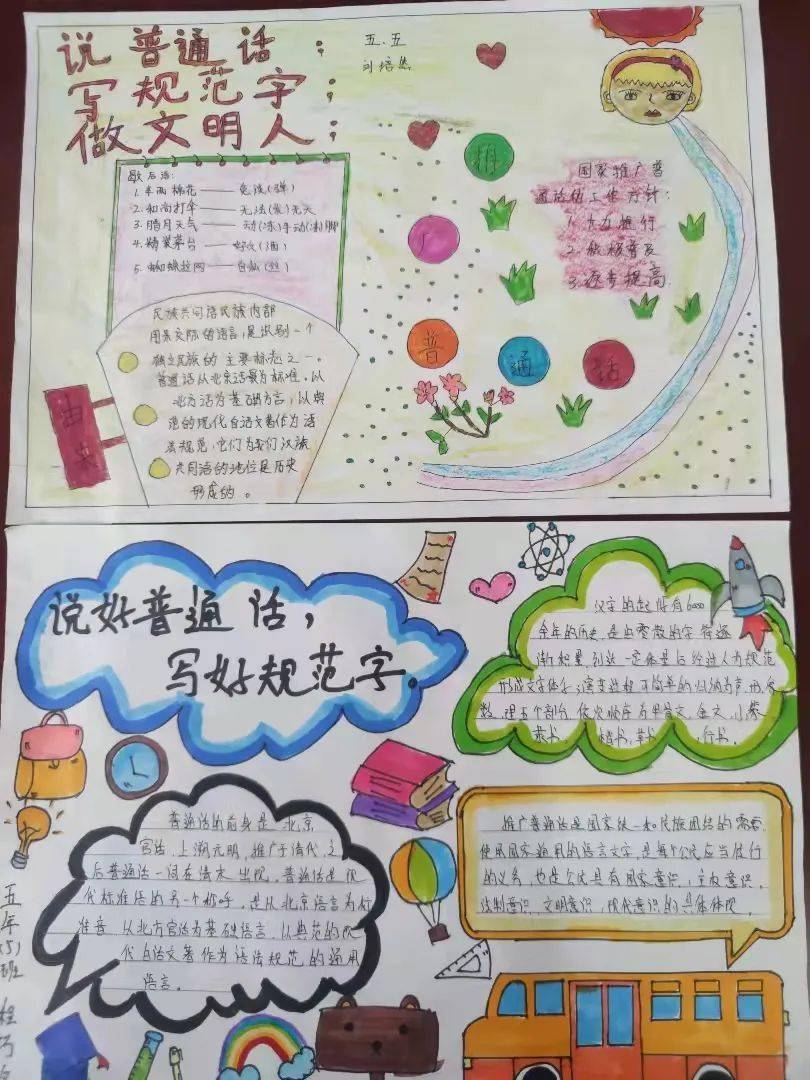 说普通话；
写规范字；
做文明人；
五.五
歇后语：
1.半两棉花——免谈(弹)
2.和尚打伞——无法(发)无天
3.腊月天气——动(冻)手动(冻)脚
4.精装茅台——好久(酒)
5.蜘蛛拉网——自私(丝)
民族共同语民族内部
用来交际的语言,是识别一个
独立民族的主要标志之一。
普通话从北京话音为标准,以
北方话为基础方言,以典
范的现代白话文著作为语
法规范,它们为我们汉族
共同语的地位是历史
形成的。
由来
推
广
普
通
话
国家推广普
通话的工作方针：
1.大力推行
2.积极普及
3.逐步提高
说好普通话，
写好规范字。
汉字的起源有6000
余年的历史,是由零散的字符逐
渐积累到达一定体量后经过人为规范
数,现五个部分,依次顺序为甲骨文,金文,小篆
隶书, 楷书,草书, 行书。
普通话的前身是北京
官话,上溯元明,推广于清代,之
后普通话一词在清末出现,普通话是现
代标准语的另一个称呼,是从北京语言为标
准音,以北方官话为基础语言,以典范的现
代白话文著作为语法规范的通用
语言。
推广普通话是国家统一和民族团结的需要,
使用国家通用的语言文字,是每个公民应当履行
的义务,也是公民具有国家意识,主权意识,
法制意识,文明意识,现代意识的具体体现。
五年(5)班
程巧